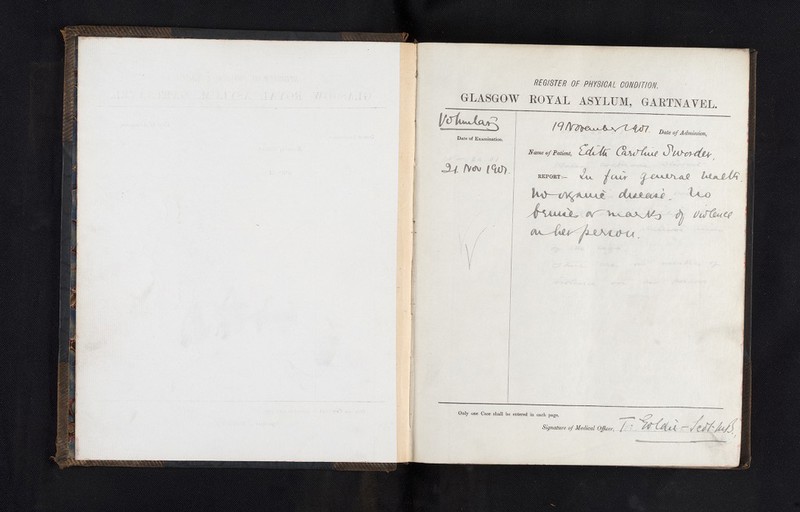 REGISTER OF PHYSICAL CONDITION.
GLASGOW ROYAL ASYLUM, GARTNAVEL.
Voluntary
Date of Examination.
21 Nov 1901
19 November 1901 Date of Admission,
Name of Patient, Edith Caroline Sworder.
REPORT:- In fair general health
No organic disease. No
bruise or marks of violence
on her person.
Only one Case shall be entered in each page.
Signature of Medical Officer, T. Goldie-Scot M.B.